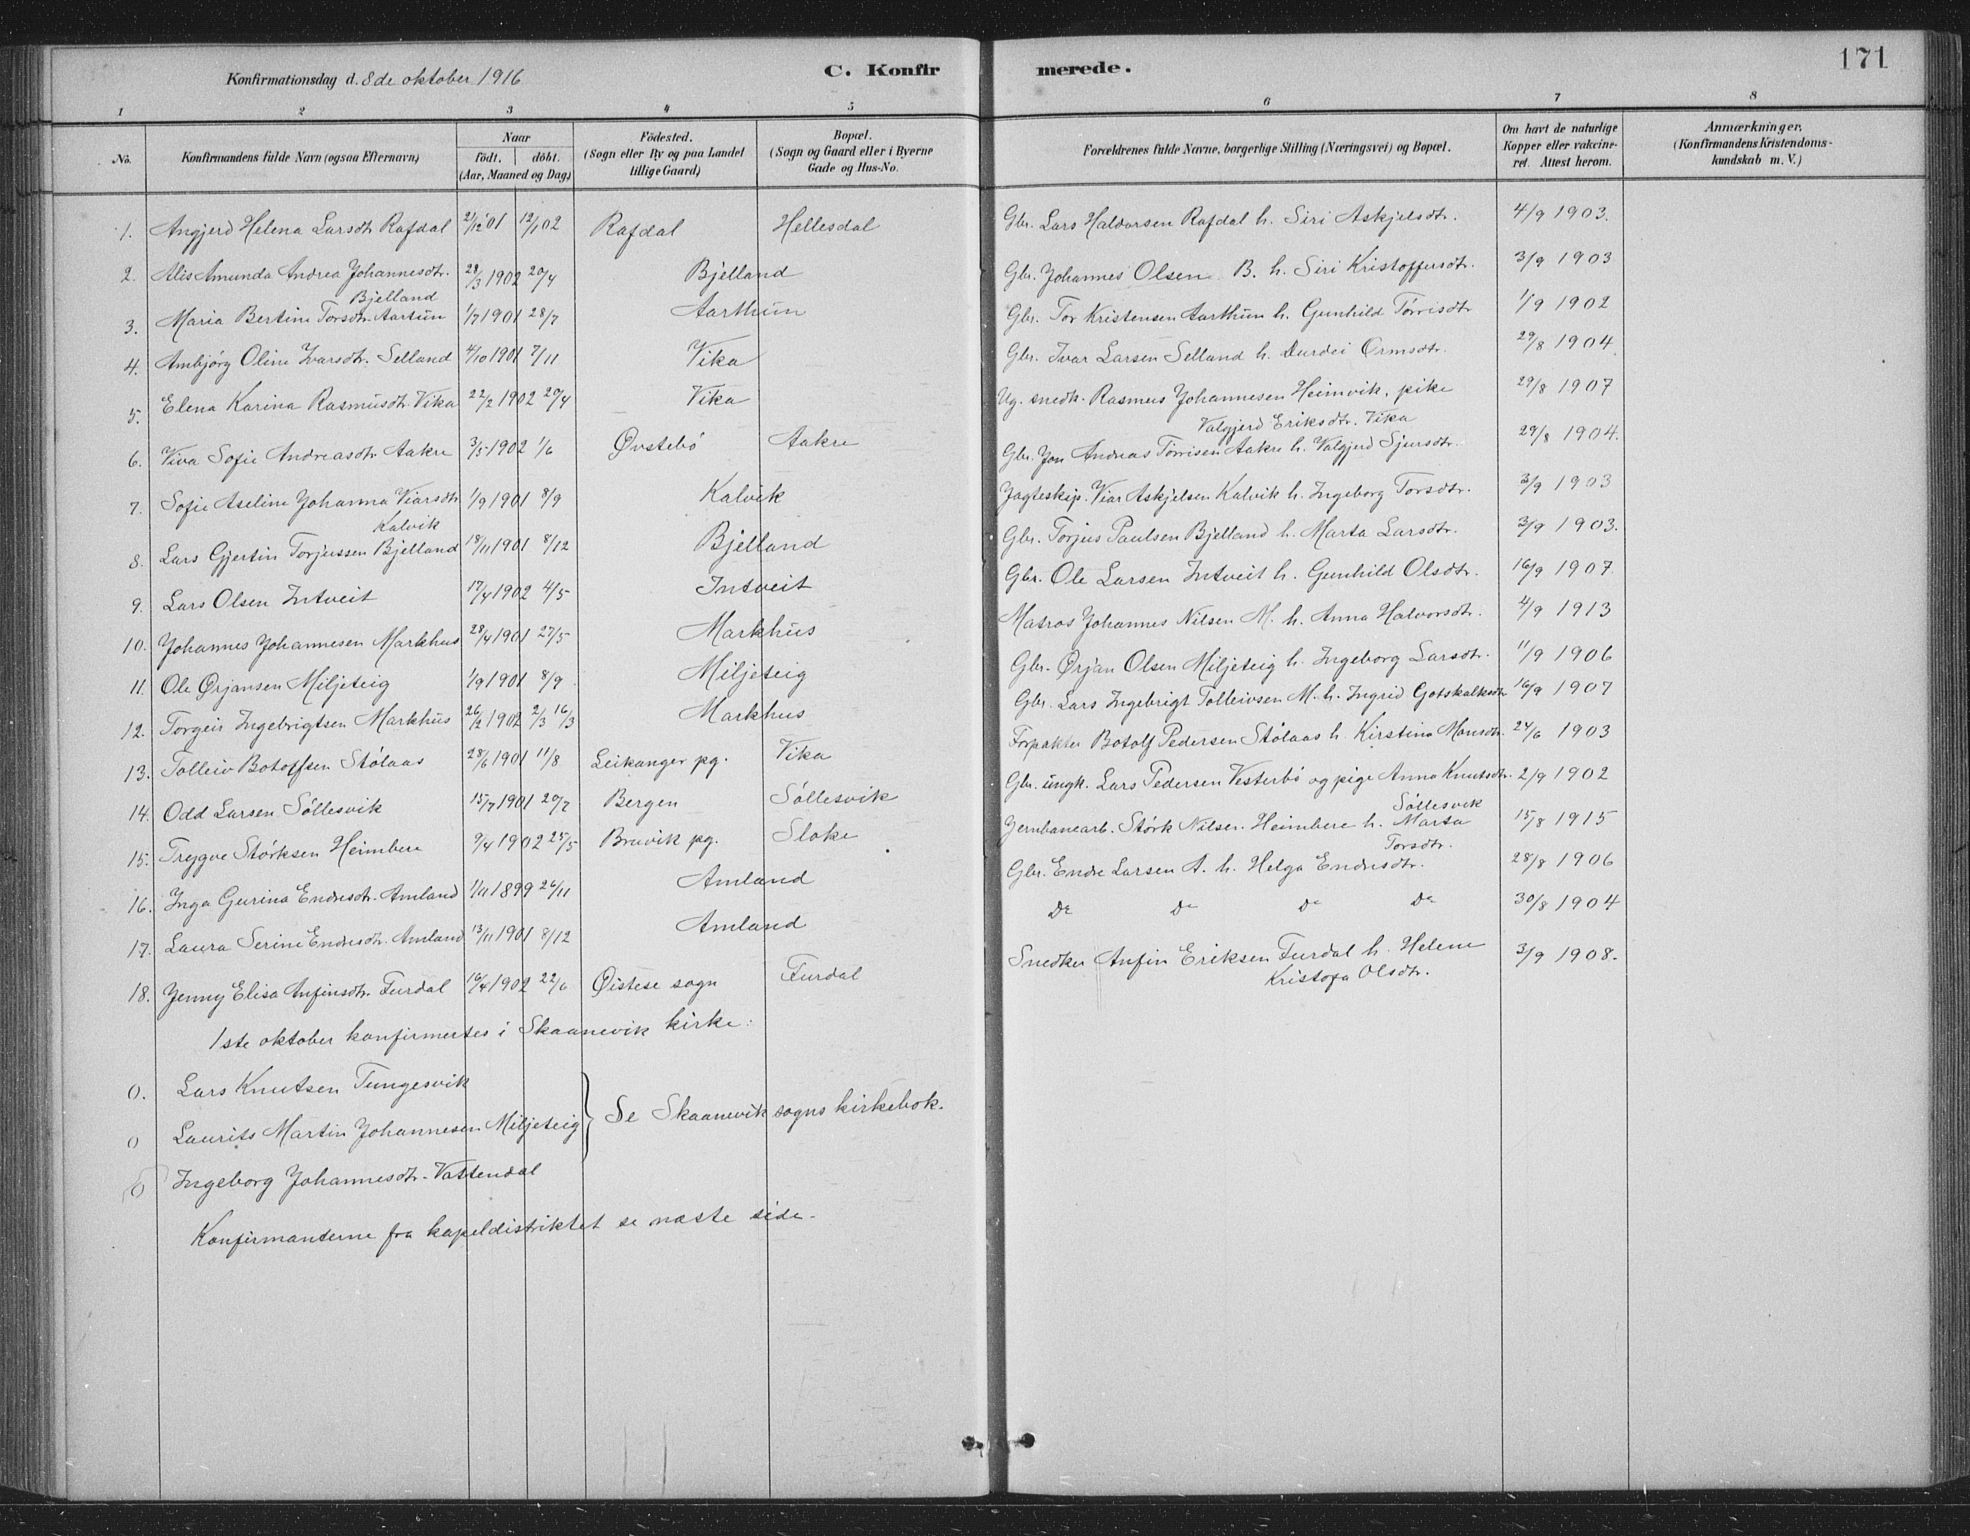 171
Konfirmationsdag d. 8de oktober 1916
C. Konfirmerede.
1 2 3 4 5 6 7 8
No. Konfirmandens fulde Navn (ogsaa Efternavn) Naar födt. döbt. (Aar, Maaned og Dag) Födested. (Sogn eller By og paa Landet tillige Gaard) Bopæl. (Sogn og Gaard eller i Byerne Gade og Hus-No. Forældrenes fulde Navne, borgerlige Stilling (Næringsvei) og Bopæl. Om havt de naturlige Kopper eller vakcineret. Attest herom. Anmærkninger. (Konfirmandens Kristendomskundskab m. V.)
1. Angjerd Helena Larsdtr. Rafdal 21/12 01 12/1 02 Rafdal Hellesdal Gbr. Lars Haldorsen Rafdal h. Siri Askjelsdtr. 4/9 1903.
2. Alis Amunda Andrea Johannesdtr. Bjelland 28/3 1902 20/4 Bjelland Gbr. Johannes Olsen B. h. Siri Kristoffersdtr. 3/9 1903
3. Maria Bertine Torsdtr. Aartun 1/7 1901 28/7 Aarthun Gbr. Tor Kristensen Aarthun h. Gunhild Tørrisdtr 1/9 1902
4. Ambjørg Oline Ivarsdtr. Selland 4/10 1901 7/11 Vika Gbr. Ivar Larsen Selland h. Durdei Ormsdtr. 29/8 1904.
5. Elena Karina Rasmusdtr. Vika 22/2 1902 20/4 Vika Ug. snedk. Rasmus Johannesen Heimvik, pike Valgjerd Eriksdtr. Vika 29/8 1907
6. Viva Sofie Andreasdtr Aakre 3/5 1902 1/6 Øvstebö Aakre Gbr. Jon Andreas Törrisen Aakre h. Valgjerd Sjursdtr. 29/8 1904.
7. Sofie Aseline Johanna Viarsdtr Kalvik 1/9 1901 8/9 Kalvik Jagteskip. Viar Askjelsen Kalvik h. Ingeborg Torsdtr. 3/9 1903
8. Lars Gjertin Torjussen Bjelland 18/11 1901 8/12 Bjelland Gbr. Torjus Paulsen Bjelland h. Marta Larsdtr. 3/9 1903.
9. Lars Olsen Intveit 17/4 1902 4/5 Intveit Gbr. Ole Larsen Intveit h. Gunhild Olsdtr. 16/9 1907.
10. Johannes Johannesen Markhus 28/4 1901 27/5 Markhus Matros Johannes Nilsen M. h. Anna Halvorsdtr. 4/9 1913
11. Ole Ørjansen Miljeteig 1/9 1901 8/9 Miljeteig Gbr. Ørjan Olsen Miljeteig h. Ingeborg Larsdtr. 11/9 1906
12. Torgeir Ingebrigtsen Markhus 26/2 1902 2/3 16/3 Markhus Gbr. Lars Ingebrigt Tolleivsen M. h. Ingrid Gotskalksdtr 16/9 1907
13. Tolleiv Botolfsen Stölaas 28/6 1901 11/8 Leikanger pg. Vika Forpakter Botolf Pedersen Stölaas h. Kirstina Monsdtr. 24/6 1903
14. Odd Larsen Söllesvik 15/7 1901 20/7 Bergen Söllesvik Gbr. ungk. Lars Pedersen Vesterbö og pige Anna Knutsdtr. Söllesvik 2/9 1902
15. Trygve Störksen Heimbere 9/4 1902 25/5 Bruvik pg. Sloke Jernbanearb. Störk Nilsen Heimbere h. Marta Torsdtr. 15/8 1915
16. Inga Gurina Endresdtr. Amland 1/11 1899 26/11 Amland Gbr. Endre Larsen A. h. Helga Endresdtr. 28/8 1906
17. Laura Serine Endresdtr. Amland 13/11 1901 8/12 Amland Do Do Do Do 30/8 1904
18. Jenny Elisa Anfinsdtr. Furdal 16/4 1902 22/6 Øistese sogn Furdal Snedker Anfin Eriksen Furdal h. Helene Kristofa Olsdtr. 3/9 1908.
1ste oktober konfirmertes i Skaanevik kirke:
0. Lars Knutsen Tungesvik
0 Laurits Martin Johannesen Miljeteig } Se Skaanevik sogns kirkebok.
0 Ingeborg Johannesdtr. Vattendal
Konfirmanterne fra kapeldistriktet se næste side.